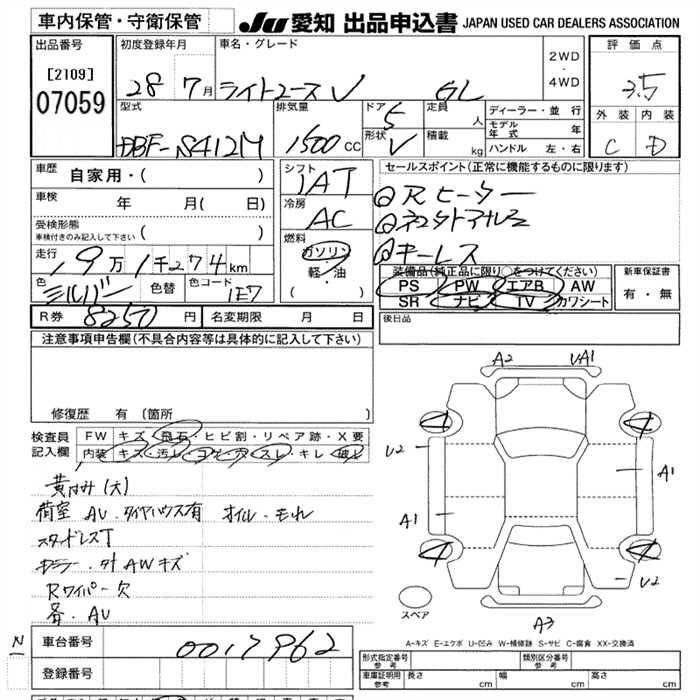 車内保管・守衛保管
JU 愛知 出品申込書 JAPAN USED CAR DEALERS ASSOCIATION
出品番号
[2109]
07059
初度登録年月
28 7月
車名・グレード
ライトエースV GL
2WD
・
4WD
評価点
3.5
外装 内装
C D
型式
DBF-S412M
排気量
1500 CC
ドア 5
形状 V
定員 人
積載 kg
ディーラー・並行
モデル年式 年
ハンドル 左・右
車歴 自家用・( )
車検 年 月( 日)
受検形態
車検付きのみ記入して下さい ( )
走行 19万1千274km
色 シルバー 色替 色コード 1E7
シフト
IAT
冷房
AC
燃料
ガソリン
軽・油
( )
セールスポイント(正常に機能するものに限ります)
Rヒーター
キーレス
装備品(純正品に限り○をつけてください)
PS PW エアB AW
SR ナビ TV カワシート
新車保証書
有・無
R券 8250円 名変期限 月 日
後日品
注意事項申告欄(不具合内容等は具体的に記入して下さい)
修復歴 有 (箇所 )
検査員記入欄
FW キズ・飛石・ヒビ割・リペア跡・X要
内装 キズ・汚レ・コゲ・穴・スレ・キレ・破レ
荷室 AU・タイヤハウス有 オイル・モレ
スタッドレスT
ドラー・外AWキズ
Rワイパー欠
各・AU
A2 UA1
U2
A1
A1
U2
A3
スペア
A-キズ E-エクボ U-凹み W-補修跡 S-サビ C-腐食 XX-交換済
車台番号 0017962
登録番号
形式指定番号
参考
類別区分番号
参考
車庫証明用
参考
長さ cm 幅 cm 高さ cm